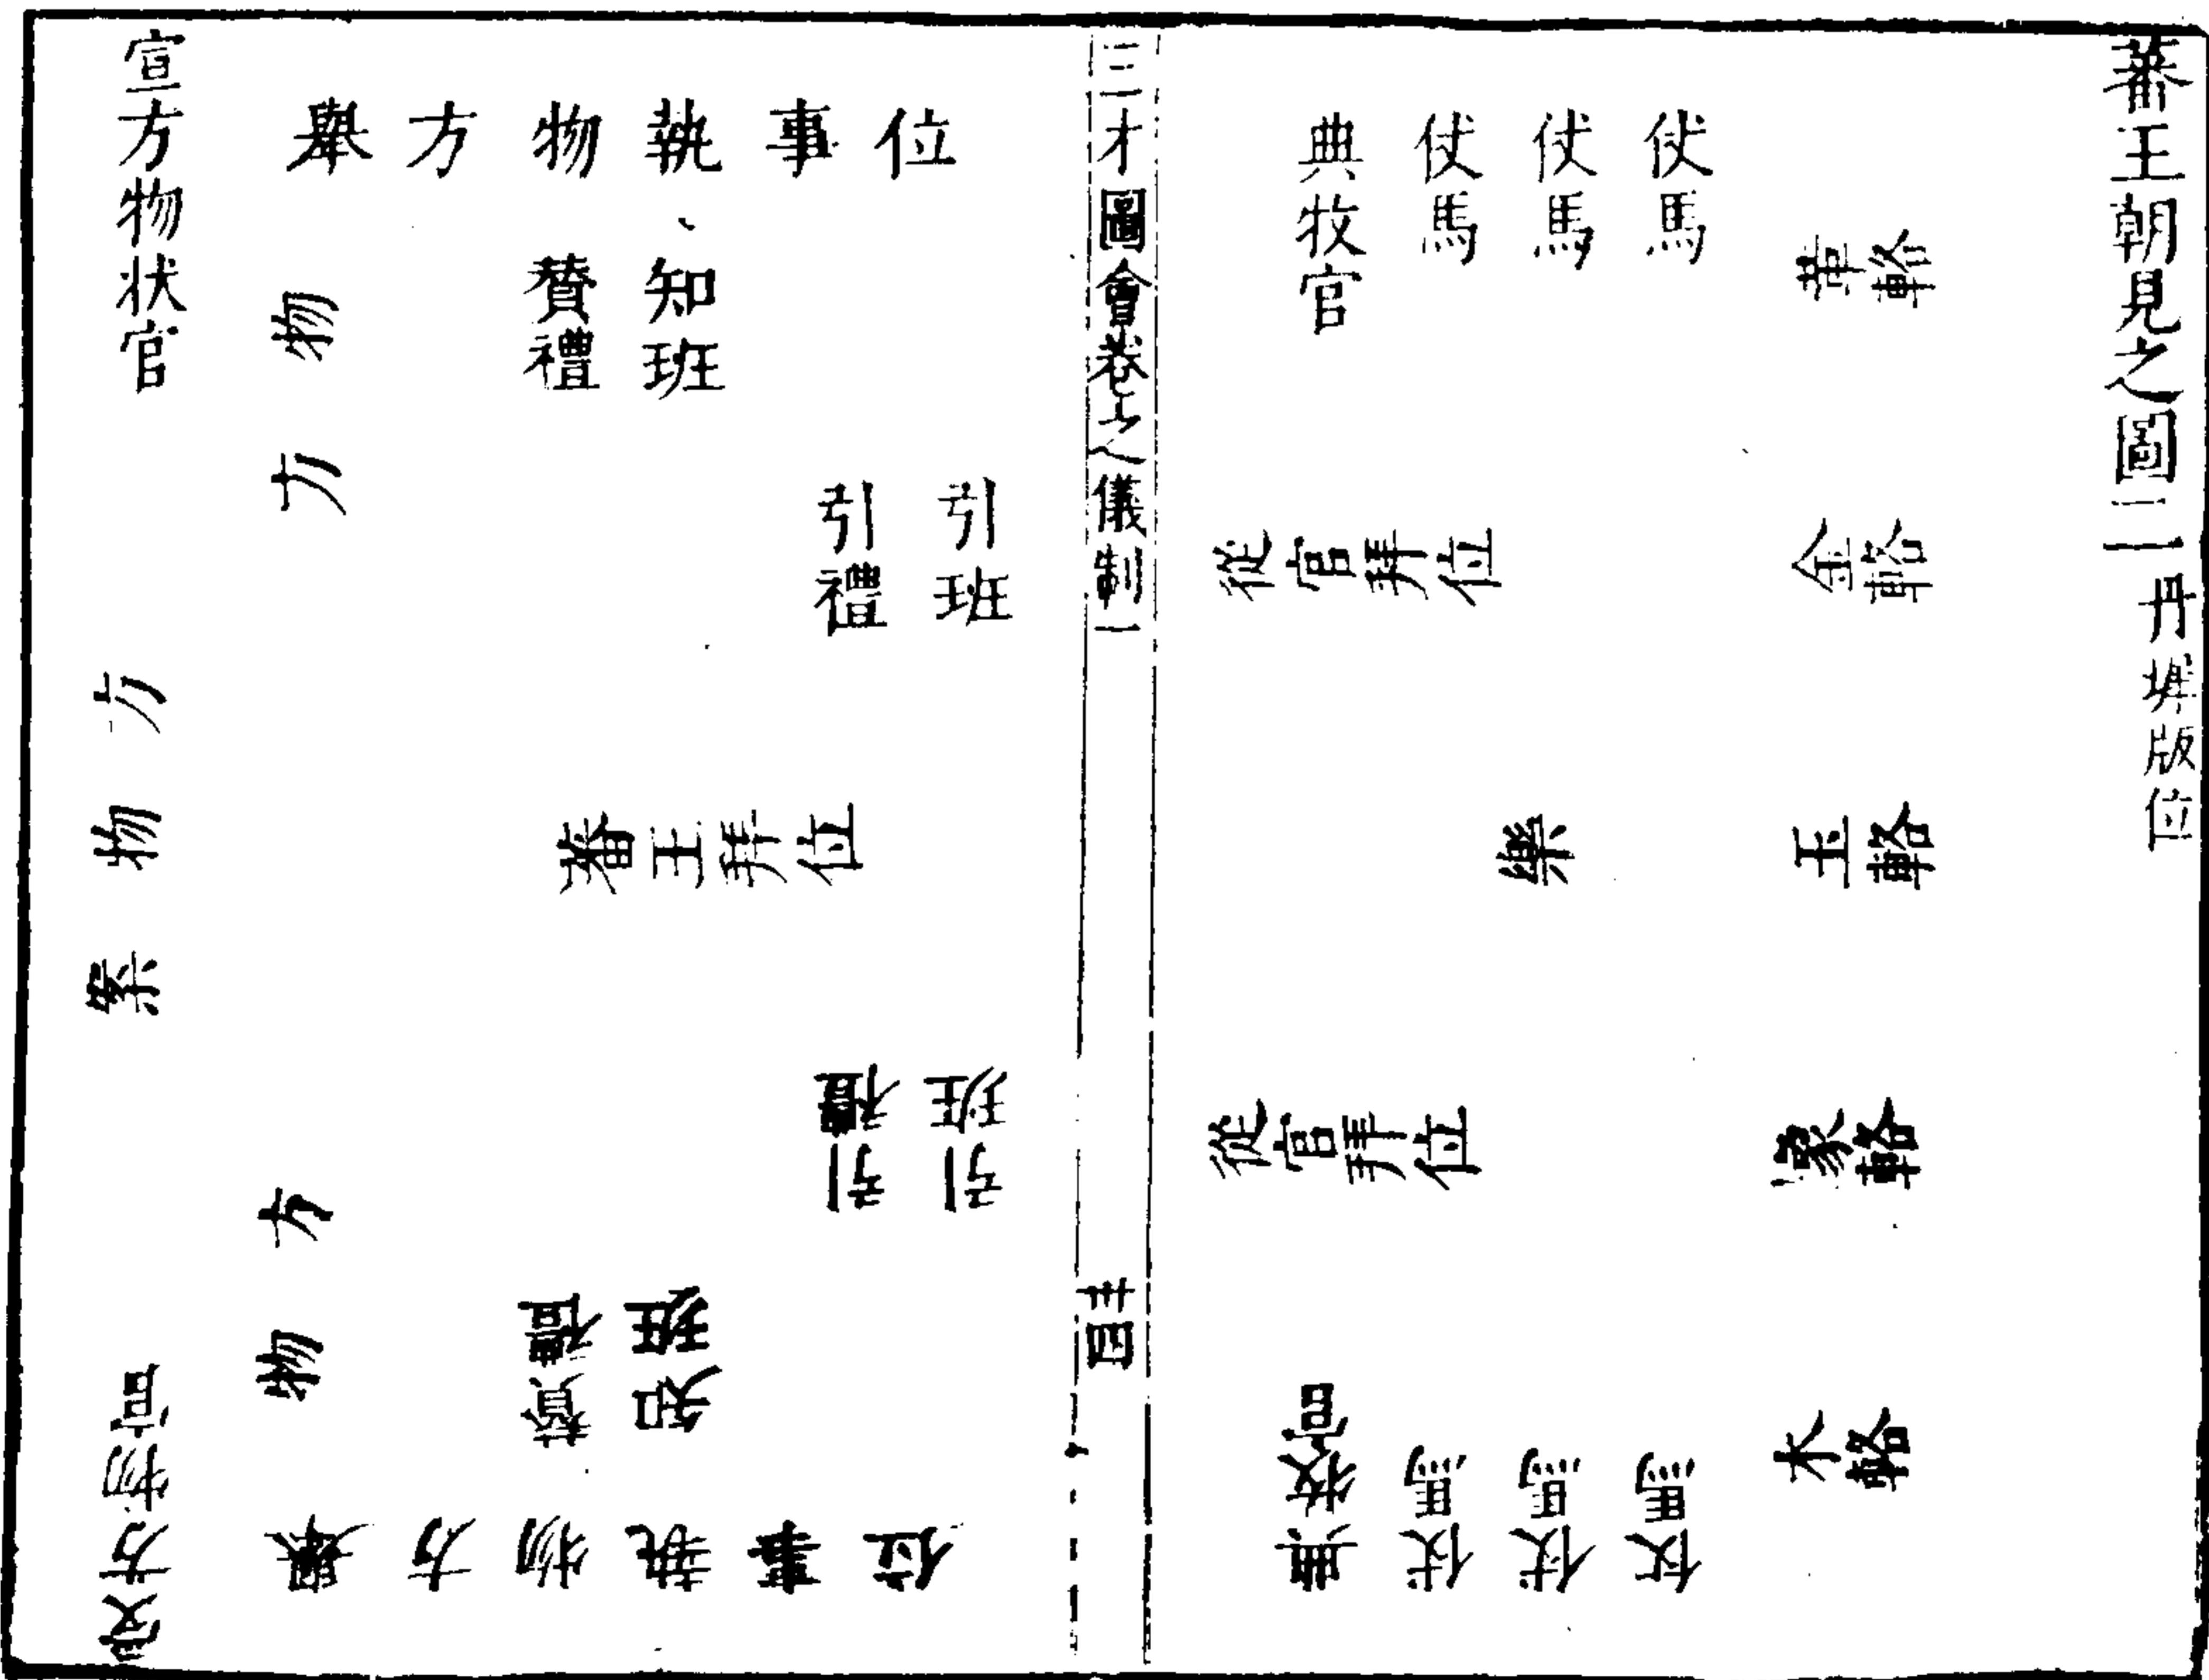 蕃王朝見之圖三 丹墀版位
革輅
金輅
玉輅
象輅
木輅
仗馬
仗馬
仗馬
典牧官
樂
從官拜位
從官拜位
仗馬
仗馬
仗馬
典牧官
三才圖會卷之儀制一 廿四
舉方物執事位
引班
引禮
知班
贊禮
蕃王拜位
引班
引禮
知班
贊禮
舉方物執事位
方物
方物
宣方物狀官
方物案
受方物官